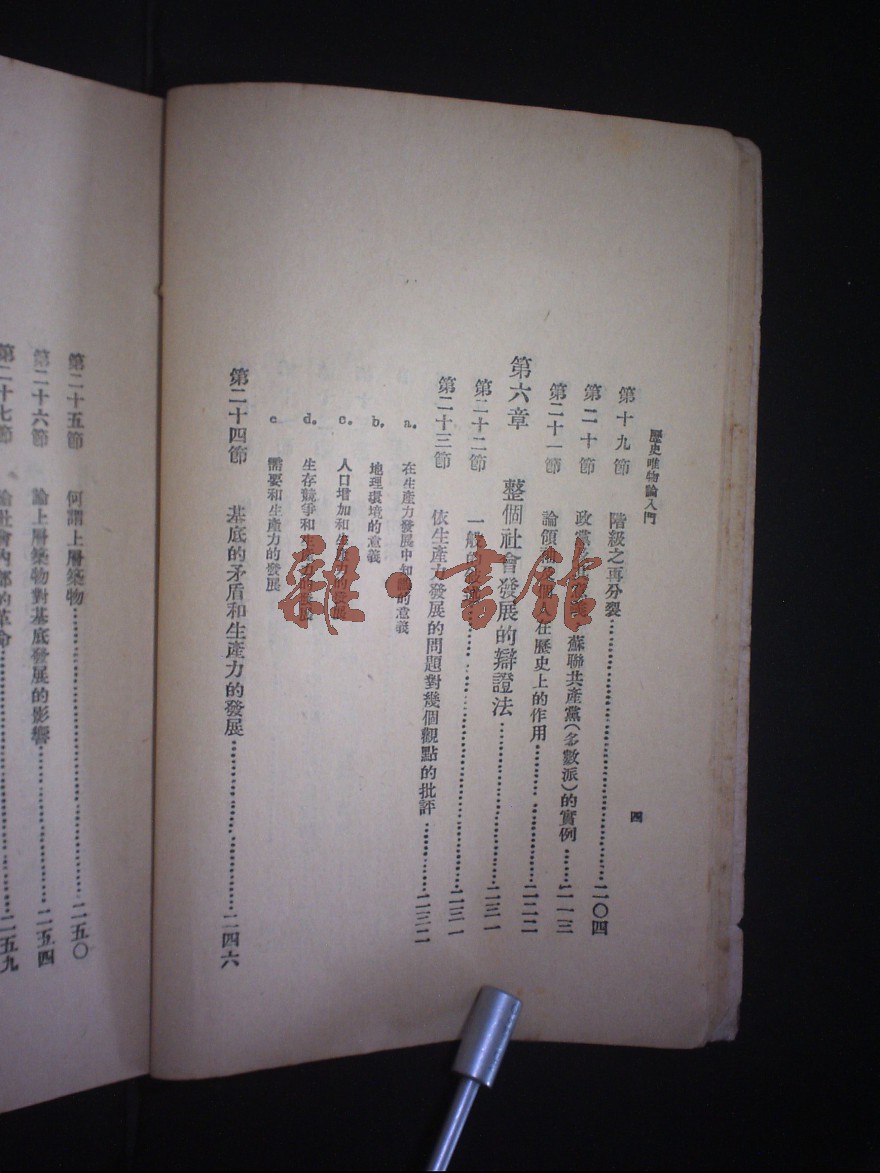 歷史唯物論入門
四
第十九節 階級之再分裂 二〇四
第二十節 政黨 蘇聯共產黨(多數派)的實例 二一三
第二十一節 論領袖 個人在歷史上的作用 二二二
第六章 整個社會發展的辯證法 二三一
第二十二節 一般的 二三一
第二十三節 依生產力發展的問題對幾個觀點的批評 二三二
a. 在生產力發展中知識的意義
b. 地理環境的意義
c. 人口增加和生產力的發展
d. 生存競爭和生產力的發展
e 需要和生產力的發展
第二十四節 基底的矛盾和生產力的發展 二四六
第二十五節 何謂上層築物 二五〇
第二十六節 論上層築物對基底發展的影響 二五四
第二十七節 論社會內部的革命 二五九
雜·書館